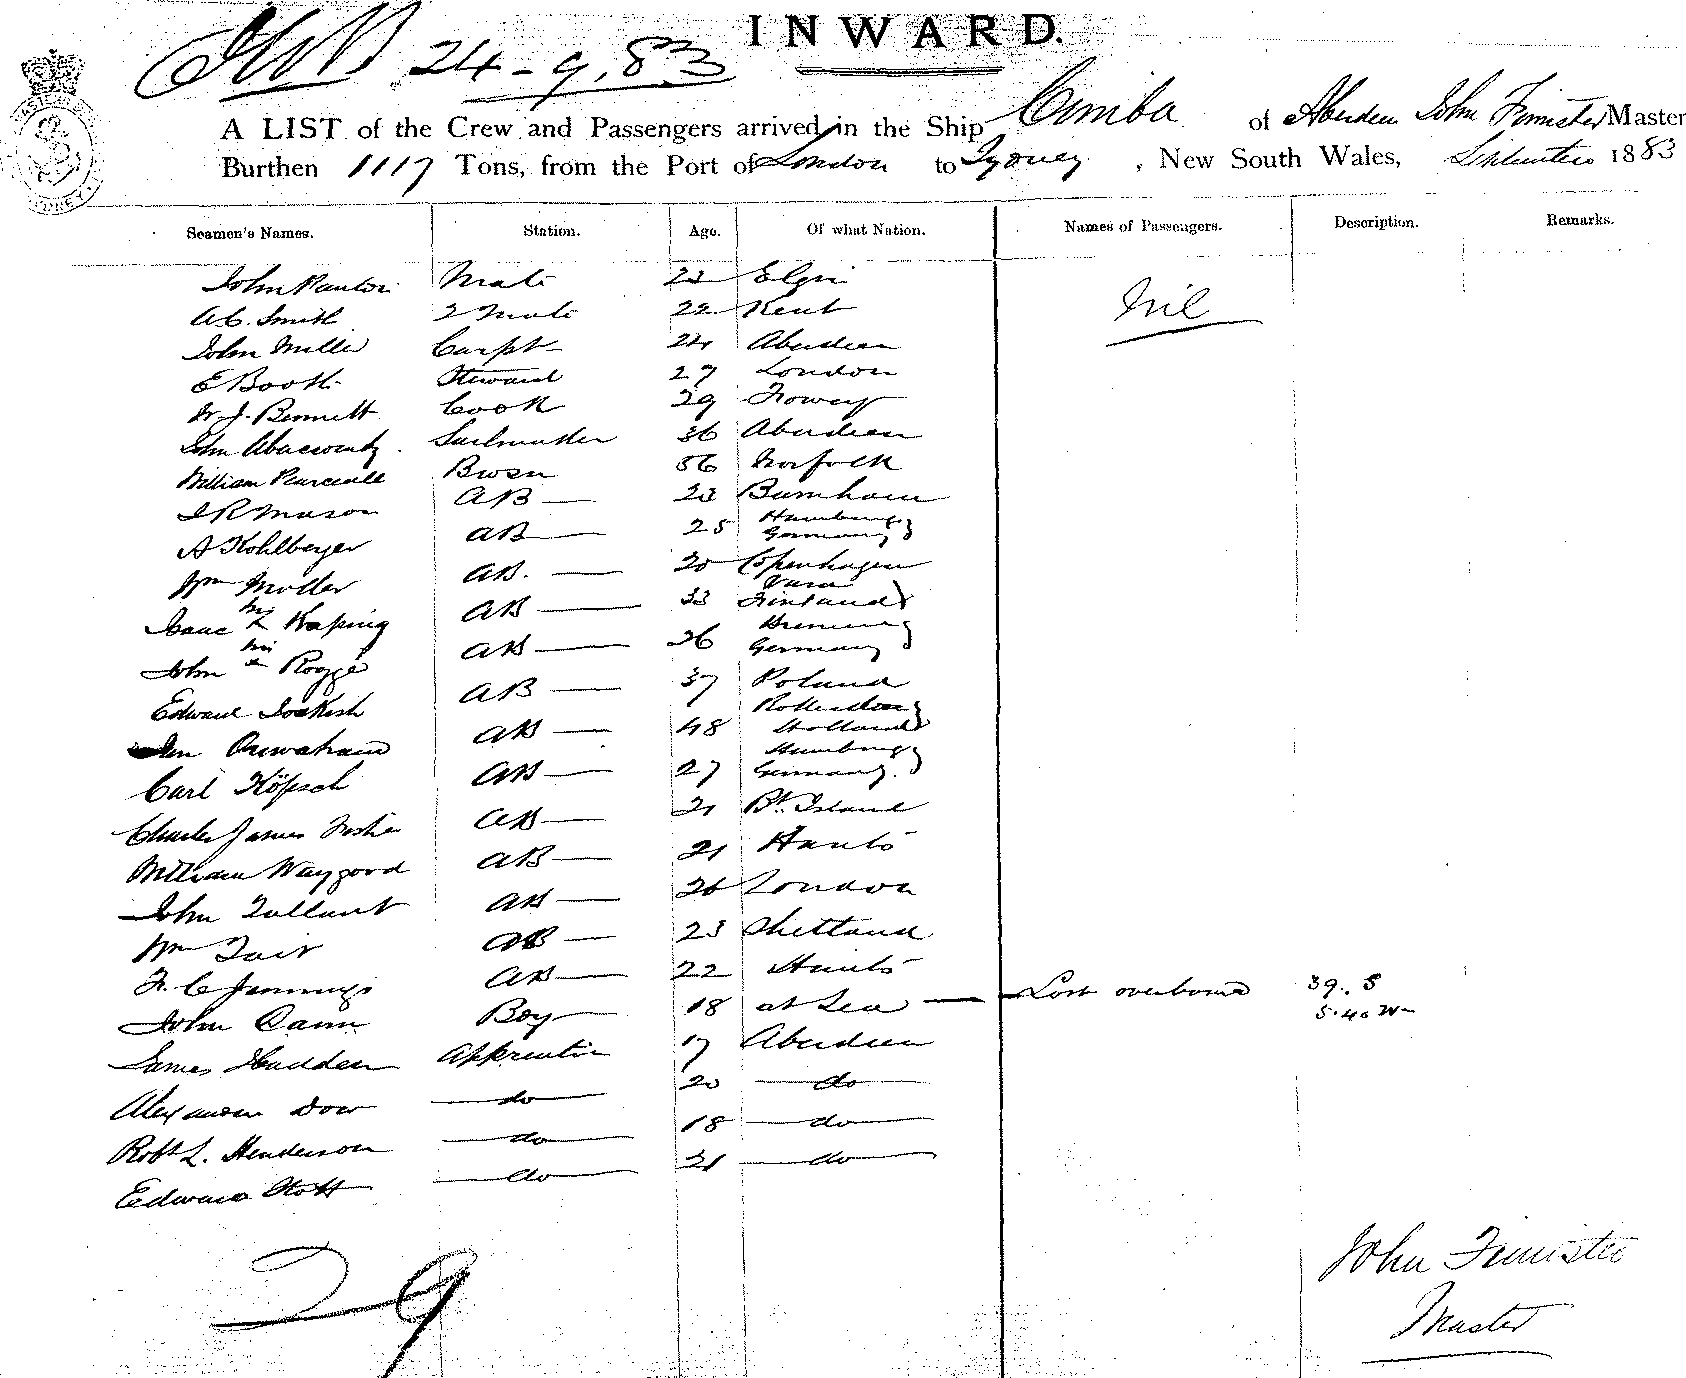 24-9.83
INWARD.
A LIST of the Crew and Passengers arrived in the Ship Cimba of Aberdeen John Fimister Master
Burthen 1117 Tons, from the Port of London to Sydney, New South Wales, September 1883
Seamen's Names. Station. Age. Of what Nation. Names of Passengers. Description. Remarks.
John Panton Mate 23 Elgin Nil
A.C. Smith 2 Mate 22 Kent
John Miller Carpt 24 Aberdeen
E Booth Steward 27 London
W. J. Bennett Cook 29 Fowey
John Abercromby Sailmaker 36 Aberdeen
William Pearceall Bosn 56 Norfolk
J R Mason AB 23 Burnham
A Kohlberger AB 25 Hamburg Germany
Wm Moller AB. 20 Copenhagen
Isaac his x Kaping AB 33 Vasa Finland
John his x Rogge AB 26 Bremen Germany
Edward AB 37 Poland
AB 48 Rotterdam Holland
Carl Köpsch AB 27 Hamburg Germany.
Charles James AB 21 Bt. Island
William Waygood AB 21 Hants
John Tallant AB 26 London
Wm Tait AB 23 Shetland
F. C Jennings AB 22 Hants
John Cann Boy 18 at Sea Lost overboard 39. S
5.40 W
James Hadden Apprentice 17 Aberdeen
Alexander Dow do 20 do
Robt L. Henderson do 18 do
Edward Stott do 21 do
29
John Fimister
Master